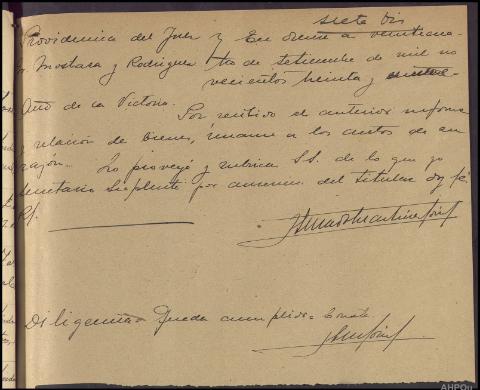 siete Dis
Providencia del Juez y En Orense a veinticua-
Sr. Mostaza y Rodriguez tro de setiembre de mil no
vecientos treinta y nueve-
Año de la Victoria.
Por recibido el anterior informe
y relación de bienes, únanse a los autos de su
razón. Lo proveyó y rubrica S.S. de lo que yo
Secretario Suplente por ausencia del titular doy fé.
Rf.
Diligencia Queda cumplido. Consta.
AHPOu